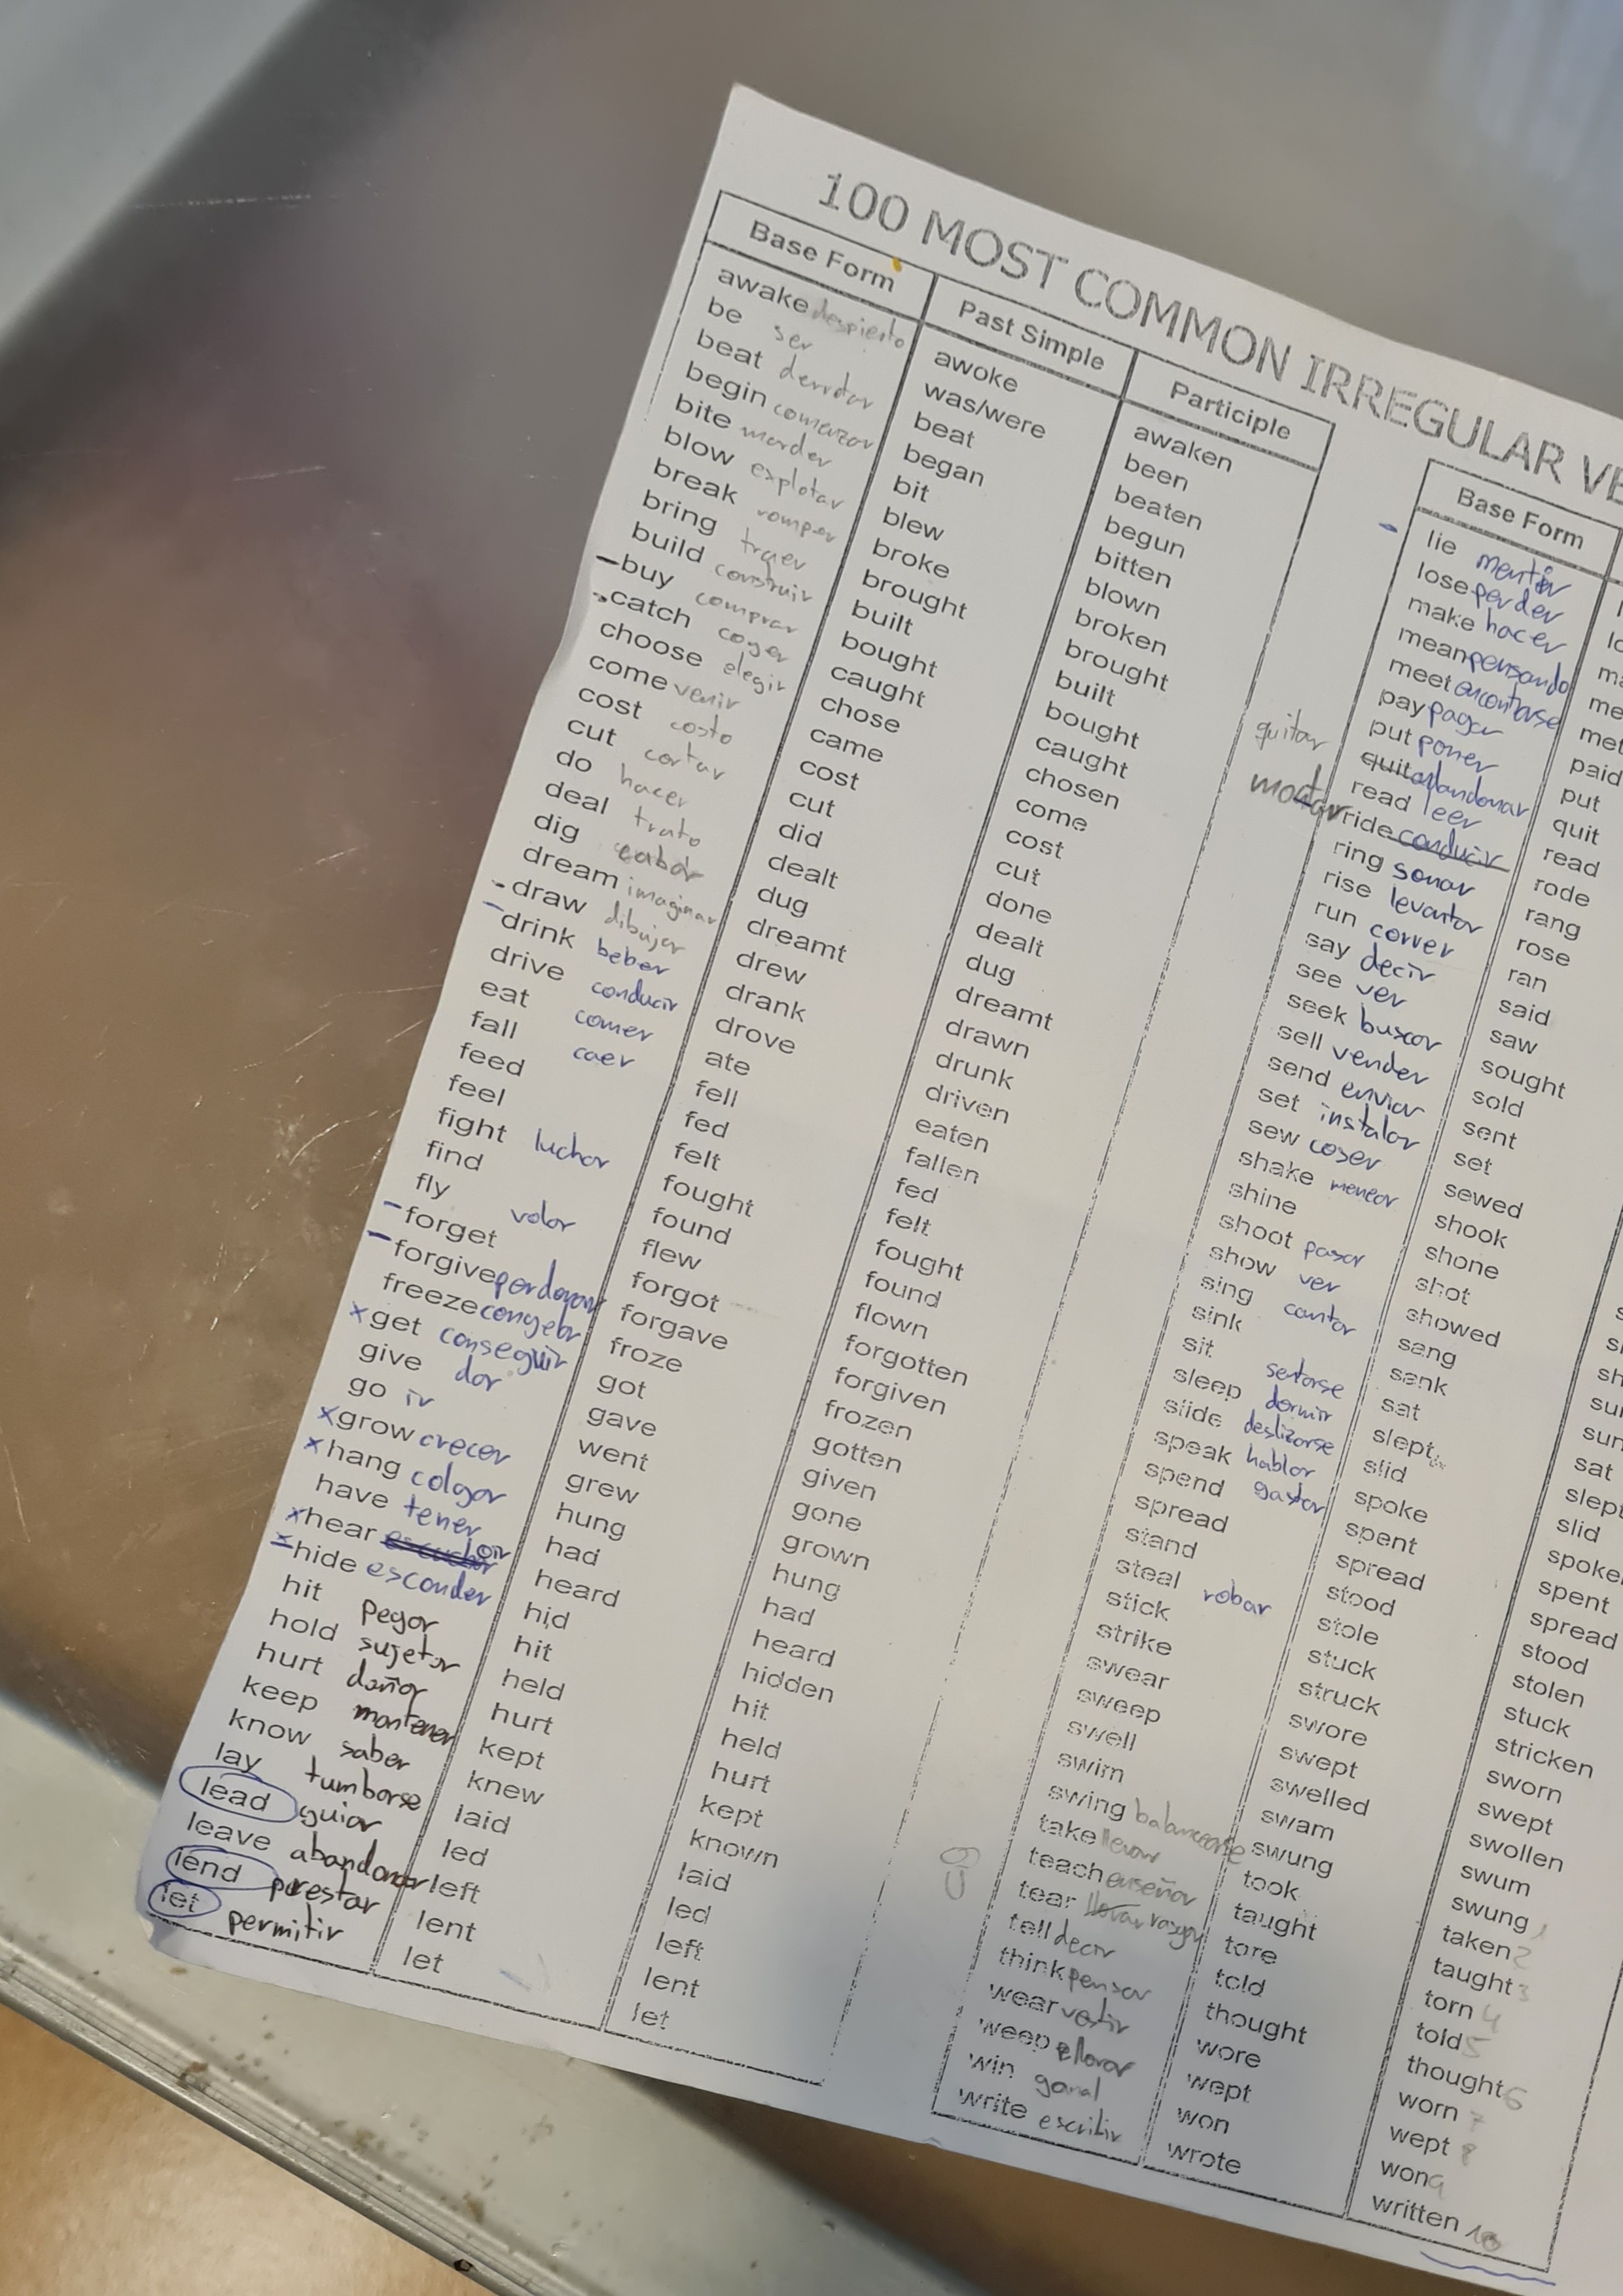 100 MOST COMMON IRREGULAR VE
Base Form Past Simple Participle
awake despierto awoke awaken
be ser was/were been
beat derrotar beat beaten
begin comenzar began begun
bite morder bit bitten
blow explotar blew blown
break romper broke broken
bring traer brought brought
build construir built built
buy comprar bought bought
catch coger caught caught
choose elegir chose chosen
come venir came come
cost costo cost cost
cut cortar cut cut
do hacer did done
deal trato dealt dealt
dig cabar dug dug
dream imaginar dreamt dreamt
draw dibujar drew drawn
drink beber drank drunk
drive conducir drove driven
eat comer ate eaten
fall caer fell fallen
feed fed fed
feel felt felt
fight luchar fought fought
find found found
fly volar flew flown
forget forgot forgotten
forgive perdonar forgave forgiven
freeze froze frozen
x get conseguir got gotten
give dar gave given
go ir went gone
x grow crecer grew grown
x hang colgar hung hung
have tener had had
x hear escuchar oir heard heard
x hide esconder hid hidden
hit pegar hit hit
hold sujetar held held
hurt dañar hurt hurt
keep mantener kept kept
know saber knew known
lay tumbarse laid laid
lead guiar led led
leave abandonar left left
lend prestar lent lent
let permitir let let
Base Form
lie mentir
lose perder lo
make hacer ma
mean pensando me
meet encontarse met
pay pagar paid
put poner put
quitar quit abandonar quit
read leer read
montar ride conducir rode
ring sonar rang
rise levantar rose
run correr ran
say decir said
see ver saw
seek buscar sought
sell vender sold
send enviar sent
set instalar set
sew coser sewed
shake menear shook
shine shone
shoot pasar shot
show ver showed
sing cantar sang
sink sank sun
sit sentarse sat sat
sleep dormir slept slept
slide deslizarse slid slid
speak hablar spoke spoke
spend gastar spent spent
spread spread spread
stand stood stood
steal robar stole stolen
stick stuck stuck
strike struck stricken
swear swore sworn
sweep swept swept
swell swelled swollen
swim swam swum
swing balancearse swung swung 1
take llevar took taken 2
teach enseñar taught taught 3
tear llevar rasgar tore torn 4
tell decir told told 5
think pensar thought thought 6
wear vestir wore worn 7
weep llorar wept wept 8
win ganal won won 9
write escribir wrote written 10